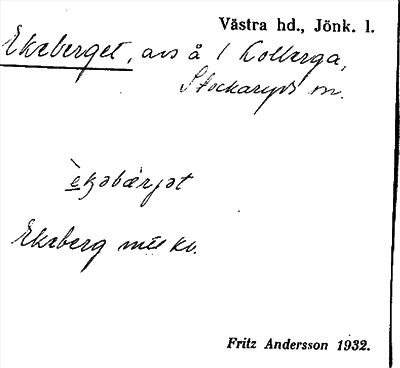 Västra hd., Jönk. l.
Ekeberget, avs å 1 Kolberga,
Stockaryds sn.
Ekeberg mtl kv.
Fritz Andersson 1932.